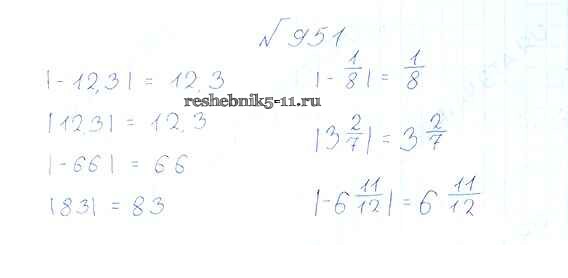 № 951
|-12,3| = 12,3
|12,3| = 12,3
|-66| = 66
|83| = 83
|-1/8| = 1/8
|3 2/7| = 3 2/7
|-6 11/12| = 6 11/12
reshebnik5-11.ru